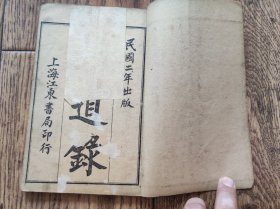 民國二年出版
道錄
上海江東書局印行